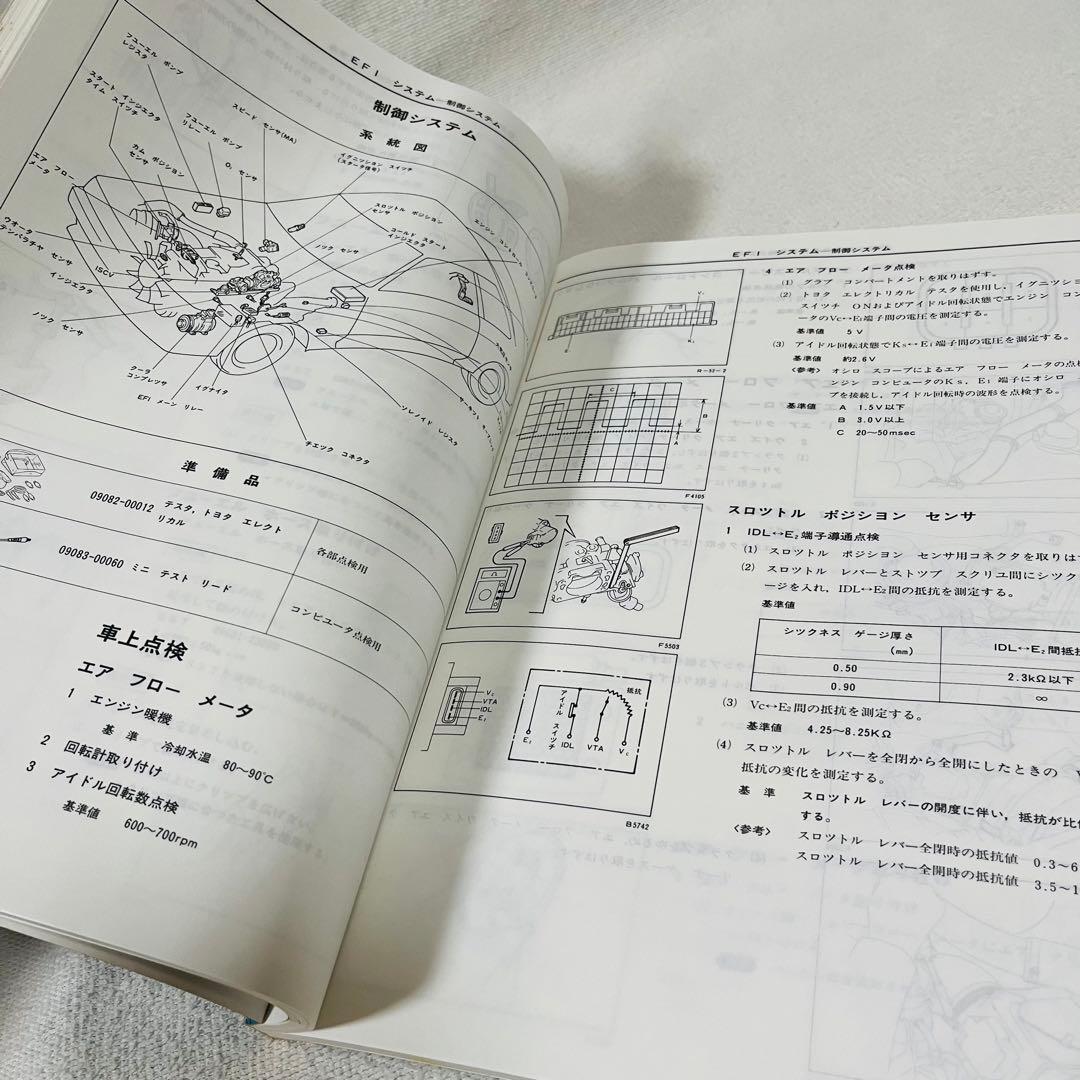 EFI システム―制御システム
制御システム
系統図
フユーエル ポンプ
レジスタ
スタート インジエクタ
タイム スイツチ
フユーエル ポンプ
リレー
スピード センサ(MA)
カム ポジション
センサ
O₂ センサ
イグニツシヨン スイツチ
(スタータ信号)
エア フロー
メータ
スロツトル ポジシヨン
センサ
コールド スタート
インジエクタ
ノツク センサ
ウオータ
テンパラチヤ センサ
ISCV
インジエクタ
ノツク センサ
クーラ
コンプレツサ
イグナイタ
EFI メーン リレー
ソレノイド レジスタ
チエツク コネクタ
準備品
09082-00012 テスタ,トヨタ エレクト
リカル
各部点検用
09083-00060 ミニ テスト リード
コンピユータ点検用
車上点検
エア フロー メータ
1 エンジン暖機
基準 冷却水温 80～90℃
2 回転計取り付け
3 アイドル回転数点検
基準値 600～700rpm
EFI システム―制御システム
R-32-2
C
B
A
F4105
F5503
Vc
VTA
IDL
E₂
抵抗
アイドル スイツチ
IDL
VTA
Vc
B5742
4 エア フロー メータ点検
(1) グラブ コンパートメントを取りはずす。
(2) トヨタ エレクトリカル テスタを使用し,イグニツシヨ
スイツチ ONおよびアイドル回転状態でエンジン コン
ータのVc↔E₂端子間の電圧を測定する。
基準値 5V
(3) アイドル回転状態でKs↔E₁端子間の電圧を測定する。
基準値 約2.6V
〈参考〉 オシロ スコープによるエア フロー メータの点検
ンジン コンピユータのKs,E₁端子にオシロ
プを接続し,アイドル回転時の波形を点検する。
基準値 A 1.5V以下
B 3.0V以上
C 20～50msec
スロツトル ポジシヨン センサ
1 IDL↔E₂端子導通点検
(1) スロツトル ポジシヨン センサ用コネクタを取りは
(2) スロツトル レバーとストツプ スクリユ間にシツク
ージを入れ,IDL↔E₂間の抵抗を測定する。
基準値
シツクネス ゲージ厚さ
(mm)
IDL↔E₂間抵
0.50
2.3kΩ以下
0.90
∞
(3) Vc↔E₂間の抵抗を測定する。
基準値 4.25～8.25KΩ
(4) スロツトル レバーを全閉から全開にしたときの
抵抗の変化を測定する。
基準 スロツトル レバーの開度に伴い,抵抗が比
する。
〈参考〉 スロツトル レバー全閉時の抵抗値 0.3～6
スロツトル レバー全開時の抵抗値 3.5～1